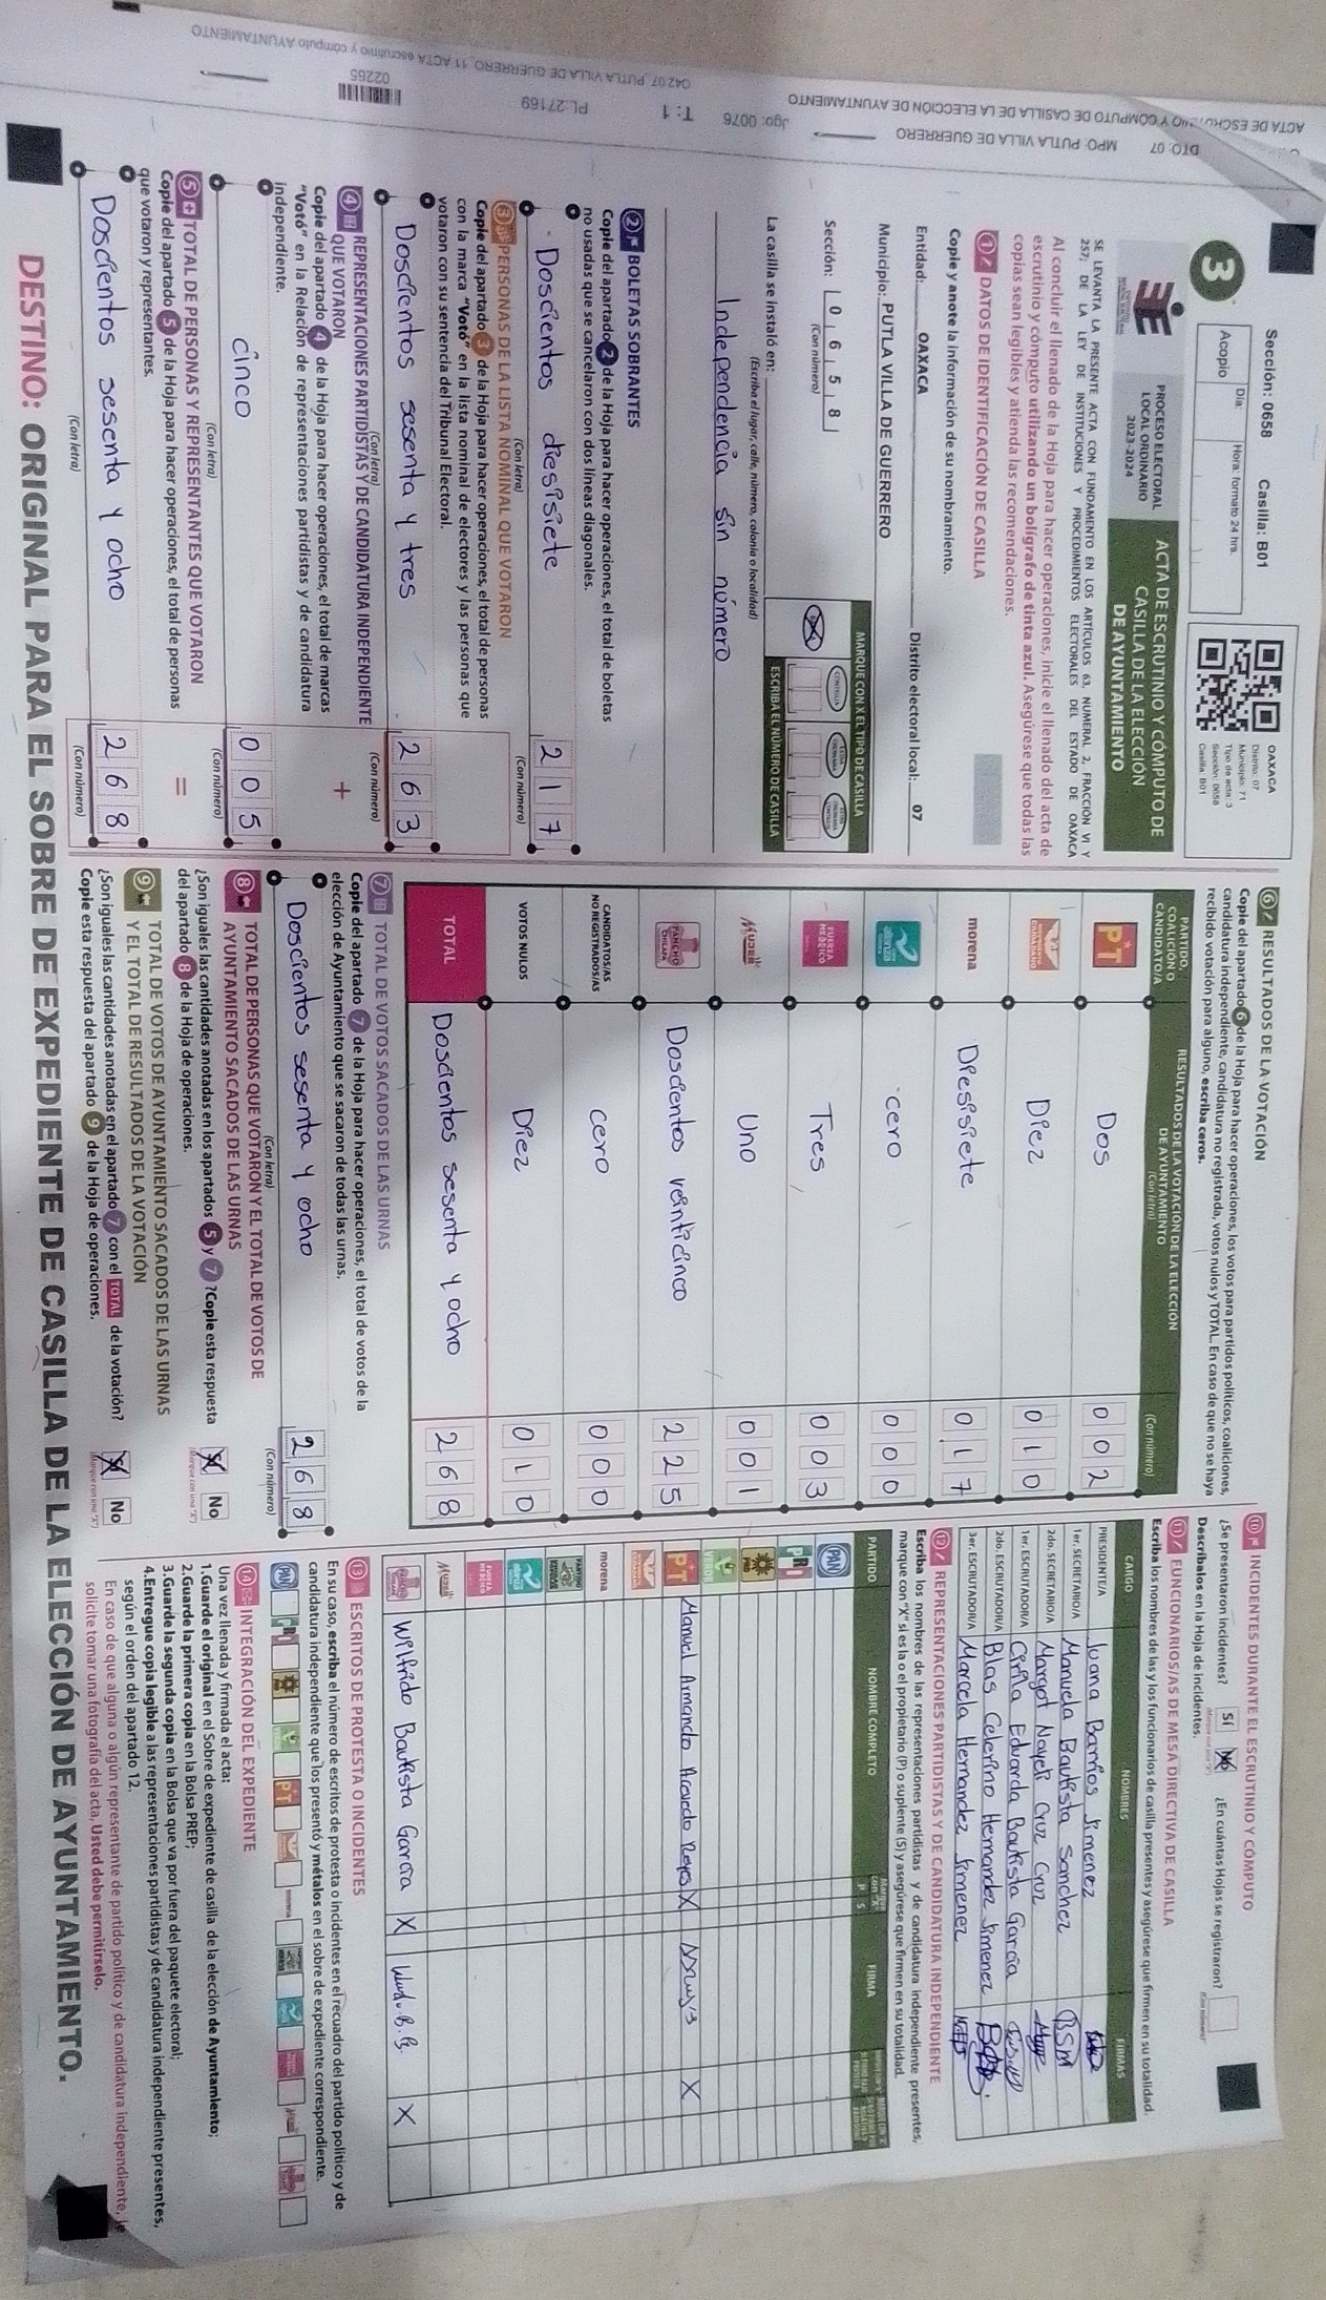 ACTA DE ESCRUTINIO Y CÓMPUTO DE CASILLA DE LA ELECCIÓN DE AYUNTAMIENTO
DTO: 07 MPO: PUTLA VILLA DE GUERRERO
Jgo: 0076 T: 1 PL:27169
042 07_PUTLA VILLA DE GUERRERO_11 ACTA escrutinio y computo AYUNTAMIENTO
02265
Sección: 0658 Casilla: B01
3
Acopio
Día:
Hora: formato 24 hrs.
OAXACA
Distrito: 07
Municipio: 71
Tipo de acta: 3
Sección: 0658
Casilla: B01
PROCESO ELECTORAL
LOCAL ORDINARIO
2023-2024
ACTA DE ESCRUTINIO Y CÓMPUTO DE
CASILLA DE LA ELECCIÓN
DE AYUNTAMIENTO
SE LEVANTA LA PRESENTE ACTA CON FUNDAMENTO EN LOS ARTÍCULOS 63, NUMERAL 2, FRACCIÓN VI Y
257; DE LA LEY DE INSTITUCIONES Y PROCEDIMIENTOS ELECTORALES DEL ESTADO DE OAXACA
Al concluir el llenado de la Hoja para hacer operaciones, inicie el llenado del acta de
escrutinio y cómputo utilizando un bolígrafo de tinta azul. Asegúrese que todas las
copias sean legibles y atienda las recomendaciones.
1 DATOS DE IDENTIFICACIÓN DE CASILLA
Copie y anote la información de su nombramiento.
Entidad: OAXACA Distrito electoral local: 07
Municipio: PUTLA VILLA DE GUERRERO
Sección: 0 6 5 8
(Con número)
MARQUE CON X EL TIPO DE CASILLA
ESCRIBA EL NÚMERO DE CASILLA
La casilla se instaló en:
(Escriba el lugar, calle, número, colonia o localidad)
Independencia sin número
2 BOLETAS SOBRANTES
Copie del apartado 2 de la Hoja para hacer operaciones, el total de boletas
no usadas que se cancelaron con dos líneas diagonales.
Doscientos diesisiete 2 1 7
(Con letra) (Con número)
3 PERSONAS DE LA LISTA NOMINAL QUE VOTARON
Copie del apartado 3 de la Hoja para hacer operaciones, el total de personas
con la marca "Votó" en la lista nominal de electores y las personas que
votaron con su sentencia del Tribunal Electoral.
Doscientos sesenta y tres 2 6 3
(Con letra) (Con número)
4 REPRESENTACIONES PARTIDISTAS Y DE CANDIDATURA INDEPENDIENTE
QUE VOTARON +
Copie del apartado 4 de la Hoja para hacer operaciones, el total de marcas
"Votó" en la Relación de representaciones partidistas y de candidatura
independiente.
cinco 0 0 5
(Con letra) (Con número)
5 TOTAL DE PERSONAS Y REPRESENTANTES QUE VOTARON =
Copie del apartado 5 de la Hoja para hacer operaciones, el total de personas
que votaron y representantes.
Doscientos sesenta y ocho 2 6 8
(Con letra) (Con número)
6 RESULTADOS DE LA VOTACIÓN
Copie del apartado 6 de la Hoja para hacer operaciones, los votos para partidos políticos, coaliciones,
candidatura independiente, candidatura no registrada, votos nulos y TOTAL. En caso de que no se haya
recibido votación para alguno, escriba ceros.
PARTIDO,
COALICIÓN O
CANDIDATO/A
RESULTADOS DE LA VOTACIÓN DE LA ELECCIÓN
DE AYUNTAMIENTO
(Con letra) (Con número)
PT Dos 0 0 2
Diez 0 1 0
morena Diesisiete 0 1 7
cero 0 0 0
FUERZA MÉXICO Tres 0 0 3
MUJER Uno 0 0 1
PANCHO CHILAPA Doscientos veinticinco 2 2 5
CANDIDATOS/AS
NO REGISTRADOS/AS cero 0 0 0
VOTOS NULOS Diez 0 1 0
TOTAL Doscientos sesenta y ocho 2 6 8
7 TOTAL DE VOTOS SACADOS DE LAS URNAS
Copie del apartado 7 de la Hoja para hacer operaciones, el total de votos de la
elección de Ayuntamiento que se sacaron de todas las urnas.
Doscientos sesenta y ocho 2 6 8
(Con letra) (Con número)
8 TOTAL DE PERSONAS QUE VOTARON Y EL TOTAL DE VOTOS DE
AYUNTAMIENTO SACADOS DE LAS URNAS
¿Son iguales las cantidades anotadas en los apartados 5 y 7 ? Copie esta respuesta
del apartado 8 de la Hoja de operaciones.
X No
9 TOTAL DE VOTOS DE AYUNTAMIENTO SACADOS DE LAS URNAS
Y EL TOTAL DE RESULTADOS DE LA VOTACIÓN
¿Son iguales las cantidades anotadas en el apartado 7 con el TOTAL de la votación?
Copie esta respuesta del apartado 9 de la Hoja de operaciones.
X No
10 INCIDENTES DURANTE EL ESCRUTINIO Y CÓMPUTO
¿Se presentaron incidentes? Sí No ¿En cuántas Hojas se registraron?
Descríbalos en la Hoja de incidentes.
11 FUNCIONARIOS/AS DE MESA DIRECTIVA DE CASILLA
Escriba los nombres de las y los funcionarios de casilla presentes y asegúrese que firmen en su totalidad.
CARGO NOMBRES FIRMAS
PRESIDENTE/A Juana Barrios Jimenez
1er. SECRETARIO/A Manuela Bautista Sanchez BSM
2do. SECRETARIO/A Margot Nayeli Cruz Cruz
1er. ESCRUTADOR/A Cirila Eduarda Bautista Garcia
2do. ESCRUTADOR/A Blas Celerino Hernandez Jimenez
3er. ESCRUTADOR/A Marcela Hernandez Jimenez
12 REPRESENTACIONES PARTIDISTAS Y DE CANDIDATURA INDEPENDIENTE
Escriba los nombres de las representaciones partidistas y de candidatura independiente presentes,
marque con "X" si es la o el propietario (P) o suplente (S) y asegúrese que firmen en su totalidad.
PARTIDO NOMBRE COMPLETO P S FIRMA
PAN
PRI
PRD
VERDE
PT Manuel Armando Acevedo Reyes X X
morena
FUERZA MÉXICO
MUJER
Wilfrido Bautista Garcia X X
13 ESCRITOS DE PROTESTA O INCIDENTES
En su caso, escriba el número de escritos de protesta o incidentes en el recuadro del partido político y de
candidatura independiente que los presentó y métalos en el sobre de expediente correspondiente.
PAN PRI PRD VERDE PT
14 INTEGRACIÓN DEL EXPEDIENTE
Una vez llenada y firmada el acta:
1.Guarde el original en el Sobre de expediente de casilla de la elección de Ayuntamiento;
2.Guarde la primera copia en la Bolsa PREP;
3.Guarde la segunda copia en la Bolsa que va por fuera del paquete electoral;
4.Entregue copia legible a las representaciones partidistas y de candidatura independiente presentes,
según el orden del apartado 12.
En caso de que alguna o algún representante de partido político y de candidatura independiente, le
solicite tomar una fotografía del acta, Usted debe permitírselo.
DESTINO: ORIGINAL PARA EL SOBRE DE EXPEDIENTE DE CASILLA DE LA ELECCIÓN DE AYUNTAMIENTO.